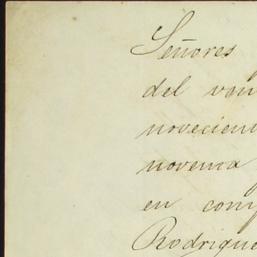 Señores
del
novecien
novena
en com
Rodrigue